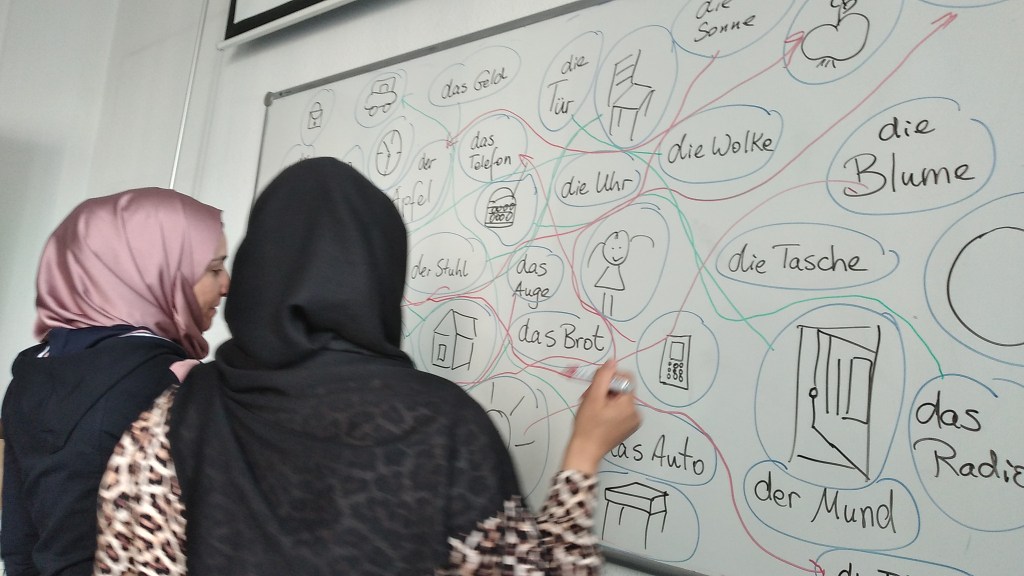 die
Sonne
das Geld
die
Tür
die Wolke
die
Blume
das
Telefon
der
Apfel
die Uhr
die Tasche
der Stuhl
das
Auge
das Brot
das
Radio
das Auto
der Mund